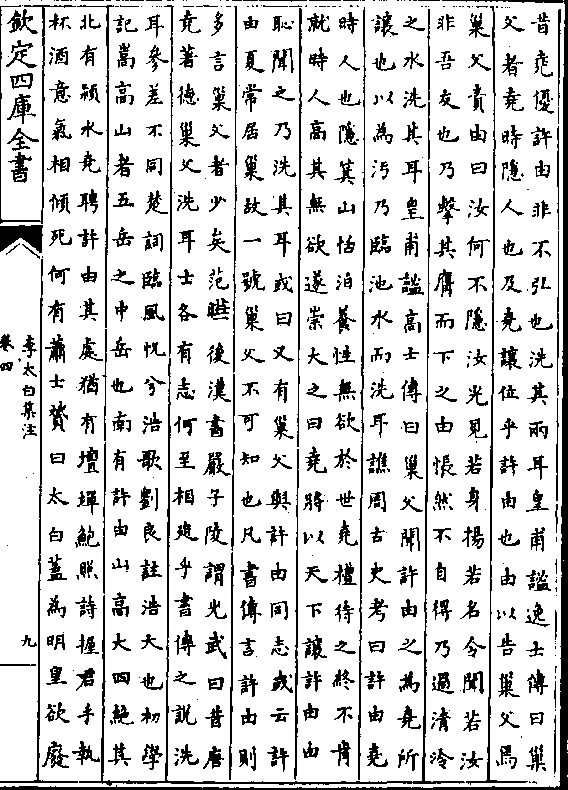 昔堯優許由非不弘也洗其兩耳皇甫謐逸士傳曰巢
父者堯時隱人也及堯讓位乎許由也由以告巢父焉
巢父責由曰汝何不隱汝光見若身揚若名令聞若汝
非吾友也乃擊其膺而下之由悵然不自得乃過清泠
之水洗其耳皇甫謐高士傳曰巢父聞許由之為堯所
讓也以為汚乃臨池水而洗耳譙周古史考曰許由堯
時人也隱箕山恬泊養性無欲於世堯禮待之終不肯
就時人高其無欲遂崇大之曰堯將以天下讓許由由
恥聞之乃洗其耳或曰又有巢父與許由同志或云許
由夏常居巢故一號巢父不可知也凡書傳言許由則
多言巢父者少矣范曄後漢書嚴子陵謂光武曰昔唐
堯著德巢父洗耳士各有志何至相廹乎書傳之說洗
耳參差不同楚詞臨風怳兮浩歌劉良註浩大也初學
記嵩高山者五岳之中岳也南有許由山高大四絶其
北有潁水堯聘許由其處猶有壇墠鮑照詩握君手執
杯酒意氣相傾死何有蕭士贇曰太白蓋為明皇欲廢
欽定四庫全書
李太白集注
卷四
九